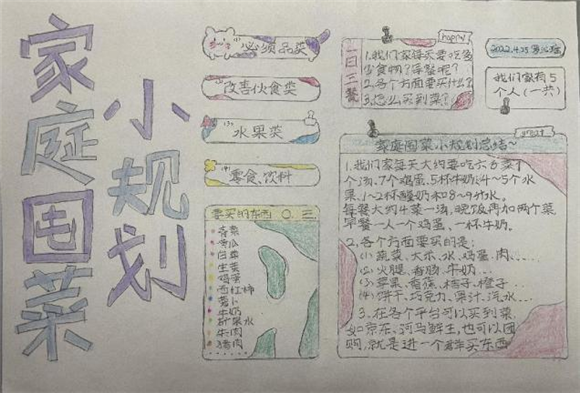 家庭囤菜
小规划
必须品类
改善伙食类
水果类
零食、饮料
要买的东西
青菜
黄瓜
白菜
生姜
鸡蛋
西红柿
萝卜
牛奶
苏果水
牛肉
猪肉
......
happy
一日三餐
1.我们家每天要吃多
少食物?等餐呢?
2.各个方面要买什么?
3.怎么买到菜?
2022.4.25
我们家有5
个人(一共)
great
家庭囤菜小规划总结~
1.我们家每天大约要吃六百菜
个汤,7个鸡蛋,5杯牛奶,4~5个水
果,1~2杯酸奶和8~9杯水,
每餐大约4菜一汤,晚饭再加两个菜
早餐一人一个鸡蛋,一杯牛奶.
2.各个方面要买的是:
(1)蔬菜、大米、水、鸡蛋、肉......
(2)火腿、香肠、牛奶...
(3)苹果、香蕉、桔子、橙子...
(4)饼干、巧克力、果汁、汽水...
3.在各个平台可以买到菜
如京东、河马鲜生,也可以团
购,就是进一个群买东西